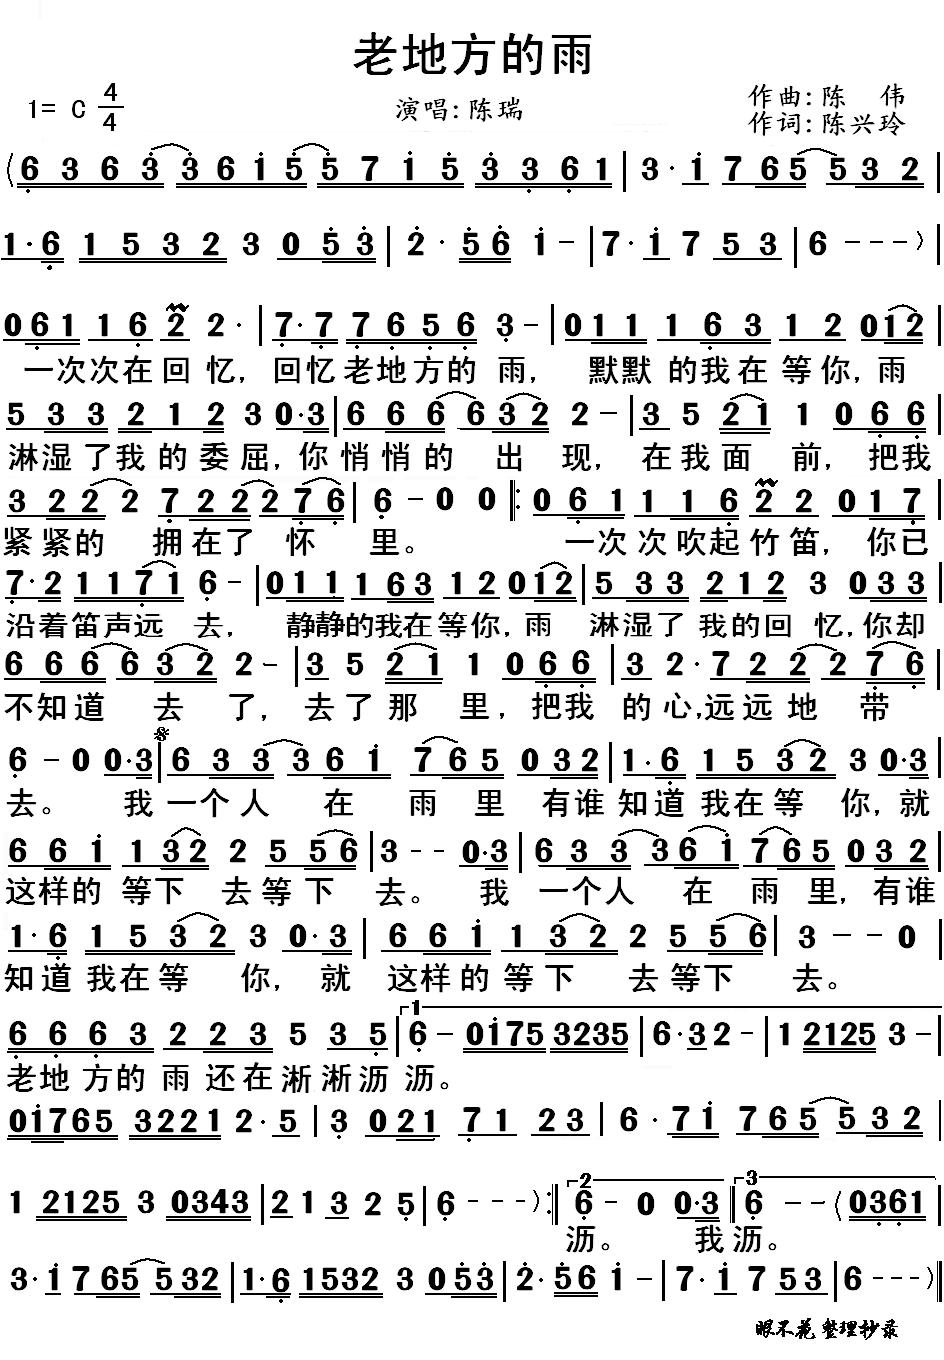 老地方的雨
1= C 4/4
演唱:陈瑞
作曲:陈 伟
作词:陈兴玲
(6 3 6 3 3 6 1 5 5 7 1 5 3 3 6 1 | 3· 1 7 6 5 5 3 2 |
1·6 1 5 3 2 3 0 5 3 | 2· 5 6 1 - | 7·1 7 5 3 | 6 - - - ) |
0 6 1 1 6 2 2· | 7·7 7 6 5 6 3 - | 0 1 1 1 6 3 1 2 0 1 2 |
一次次在回忆, 回忆老地方的 雨, 默默的我在等你,雨
5 3 3 2 1 2 3 0·3 | 6 6 6 6 3 2 2 - | 3 5 2 1 1 0 6 6 |
淋湿了我的委屈,你悄悄的 出 现, 在我面 前,把我
3 2 2 2 7 2 2 2 7 6 | 6 - 0 0 |: 0 6 1 1 1 6 2 2 0 1 7 |
紧紧的 拥在了 怀 里。 一次次吹起竹笛, 你已
7·2 1 1 7 1 6 - | 0 1 1 1 6 3 1 2 0 1 2 | 5 3 3 2 1 2 3 0 3 3 |
沿着笛声远 去, 静静的我在等你,雨 淋湿了我的回忆,你却
6 6 6 6 3 2 2 - | 3 5 2 1 1 0 6 6 | 3 2· 7 2 2 2 7 6 |
不知道 去 了, 去了那 里,把我 的心,远远地 带
6 - 0 0·3 | 6 3 3 3 6 1 7 6 5 0 3 2 | 1·6 1 5 3 2 3 0·3 |
去。 我一个人 在 雨 里 有谁知道我在等 你,就
6 6 1 1 3 2 2 5 5 6 | 3 - - 0·3 | 6 3 3 3 6 1 7 6 5 0 3 2 |
这样的 等下 去等下 去。 我 一个人 在 雨 里,有谁
1·6 1 5 3 2 3 0·3 | 6 6 1 1 3 2 2 5 5 6 | 3 - - 0
知道我在等 你, 就 这样的等下 去等下 去。
6 6 6 3 2 2 3 5 3 5 | 1 6 - 0 1 7 5 3 2 3 5 | 6·3 2 - | 1 2 1 2 5 3 - |
老地方的雨还在淅淅沥沥。
0 1 7 6 5 3 2 2 1 2·5 | 3 0 2 1 7 1 2 3 | 6· 7 1 7 6 5 5 3 2 |
1 2 1 2 5 3 0 3 4 3 | 2 1 3 2 5 | 6 - - - ) :| 2 6 - 0 0·3 || 3 6 - - (0 3 6 1 |
沥。 我沥。
3·1 7 6 5 5 3 2 | 1·6 1 5 3 2 3 0 5 3 | 2·5 6 1 - | 7·1 7 5 3 | 6 - - - ) ||
眼不花 整理抄录